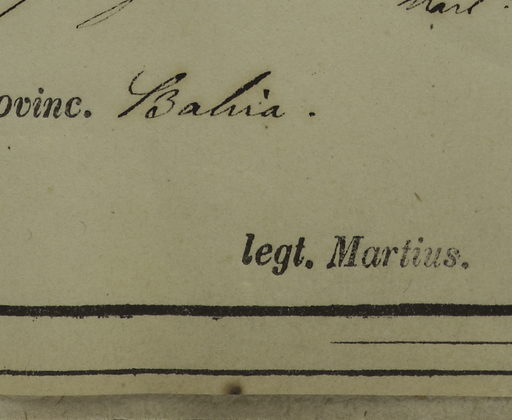 Mart.
ovinc. Bahia.
legt. Martius.